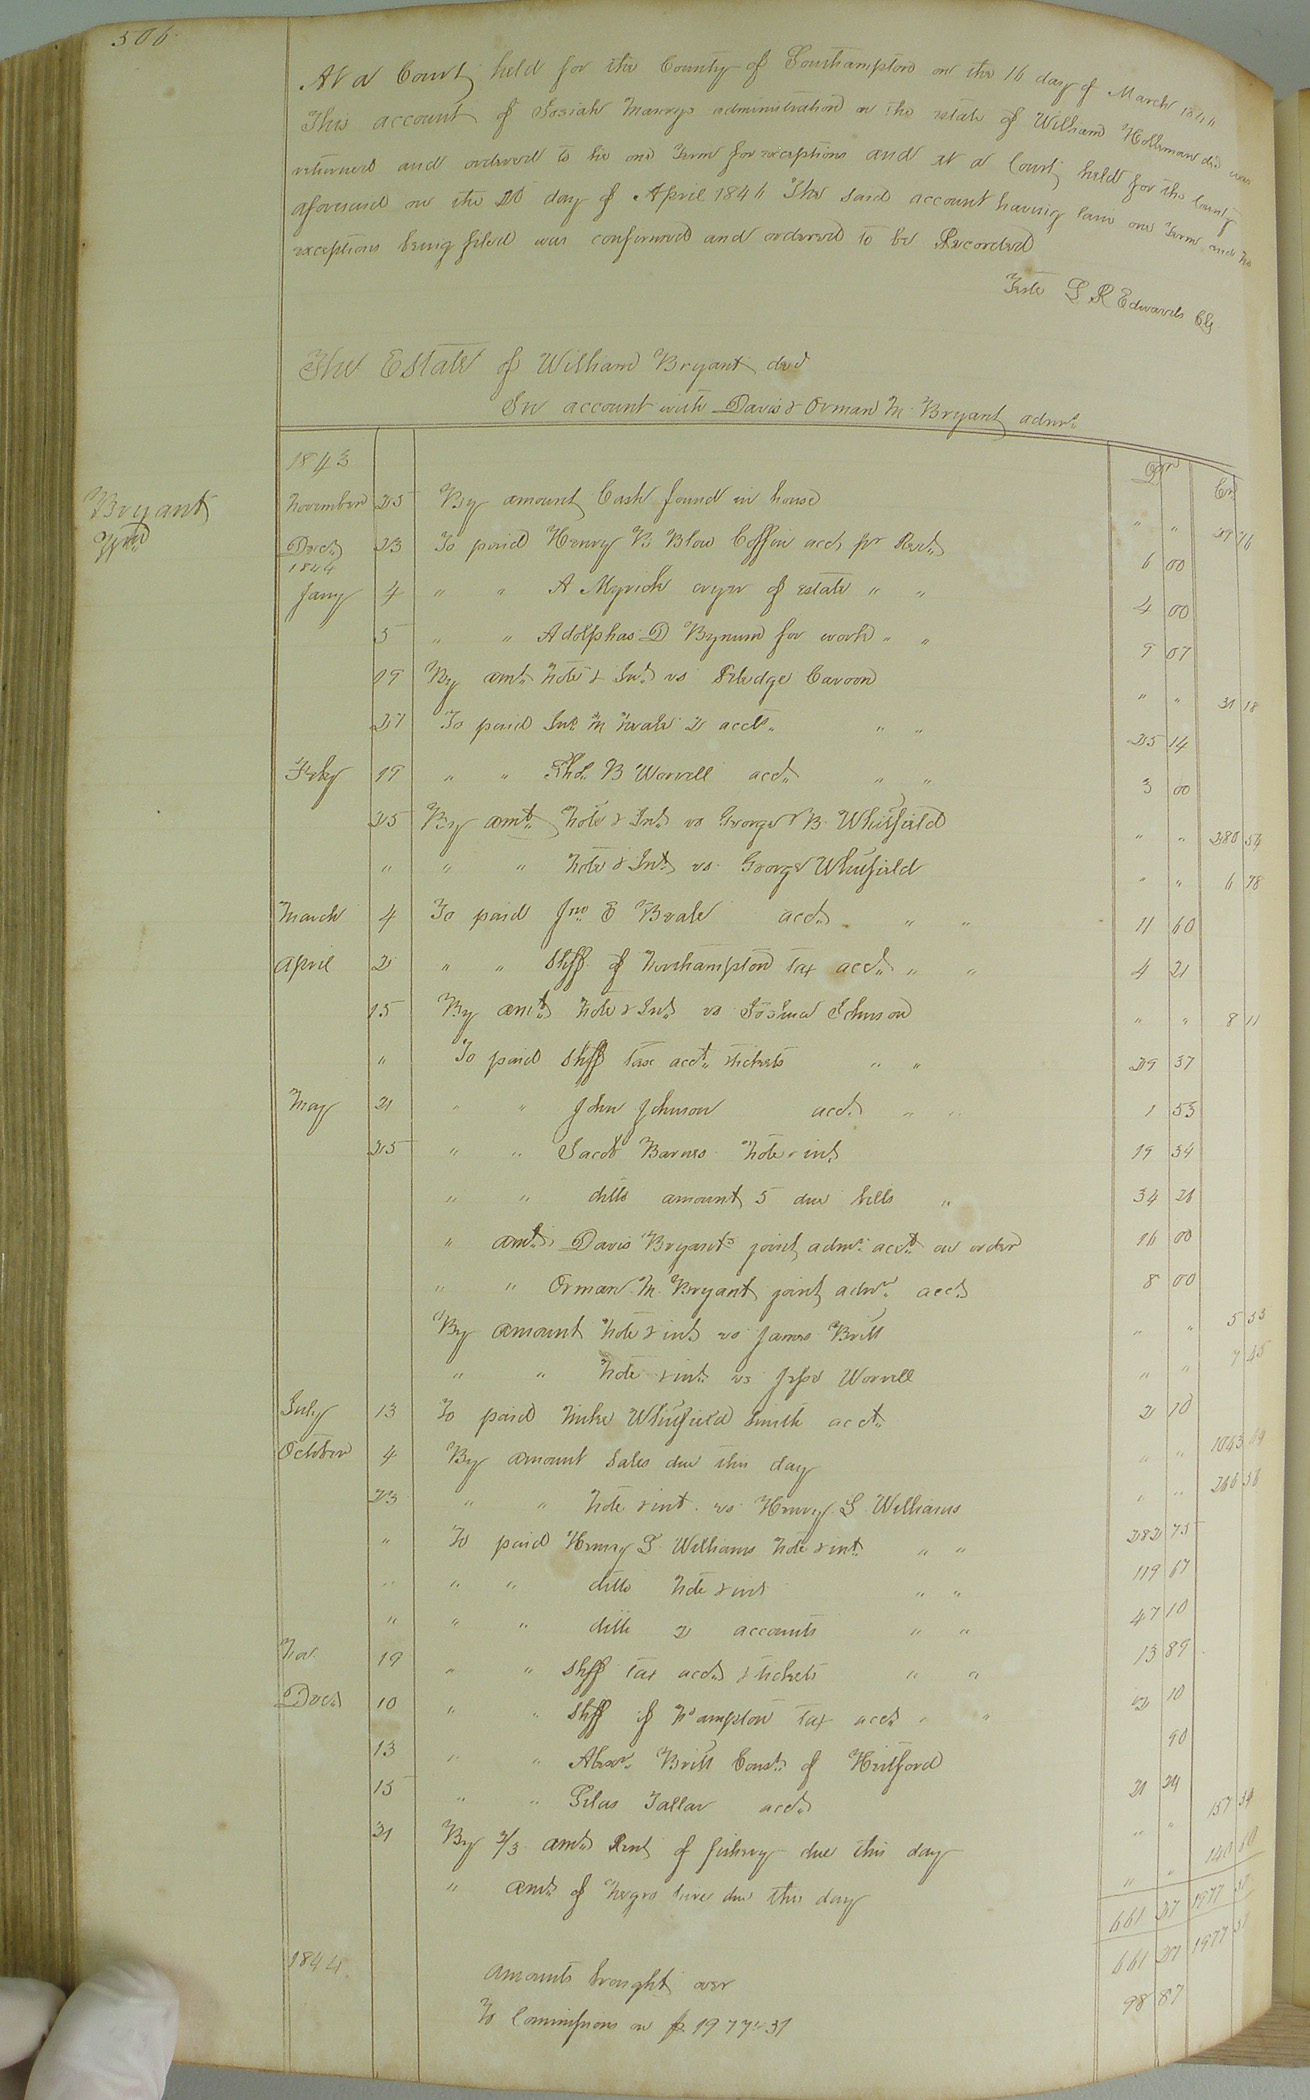 506
At a Court held for the County of Southampton on the 16 day of March 1846
This account of Josiah Manrys administration on the estate of William Holleman decd was
returned and ordered to lie one Term for exceptions and at a Court held for the County
aforesaid on the 20 day of April 1846 The said account having lain one Term and no
exceptions being filed was confirmed and ordered to be Recorded
Teste L R Edwards Clk
The Estate of William Bryant decd
In account with Davis & Orman M Bryant admrs
1843 Dr Cr
Bryant
Wm
November 25 By amount Cash found in house " "
Decr 23 To paid Henry B Blow Coffin acct pr Rect 6 00
1844
Jany 4 " " A Myrick cryer of estate " " 4 00
5 " " Adolphas D Bynum for work " " 9 07
19 By amt. Note & Int. vs Cavoon " " 31 18
27 To paid M Neale 2 accts. " " 25 14
Feby 19 " " Thos. B Worrell acct. " " 3 00
25 By amt. Note & Int. vs George B. Whitfield " " 280 54
" " " Note & Int. vs George Whitfield " " 6 78
March 4 To paid Jno E Beale acct. " " 11 60
April 2 " " Shff of Northampton Tax acct. " " 4 21
15 By amt. Note & Int. vs Joshua Johnson " " 8 11
" To paid Shff Tax acct. tickets " " 29 37
May 21 " " John Johnson acct. " " 1 53
25 " " Jacob Barnes Note & int. 19 34
" " ditto amount 5 due bills " 34 26
" amt. Davis Bryants joint admr. acct. on order 16 00
" " Orman M. Bryant joint admr. acct. 8 00
By amount Note & int. vs James Britt " " 5 53
" " Note & int. vs Jesse Worrell " " 7 45
July 13 To paid Whitfield Smith acct. 2 10
October 4 By amount Sales due this day " " 1043
23 " " Note & int. vs Henry S Williams " " 266 56
" To paid Henry S Williams Note & int. " " 282 75
" " " ditto Note & int " " 119 67
" " " ditto 2 accounts " " 47 10
Nov. 19 " " Shff Tax acct. & tickets " " 13 89
Decr. 10 " " Shff of Nhampton Tax acct. " " 2 10
13 " " Alexr. Britt Const. of Hertford 90
15 " " Silas acct. 21 24
31 By 2/3 amt. Rent of fishery due this day " " 157 54
" amt. of Negro hires due this day " " 140 60
661 27 1977 37
1844 amounts brought over 661 27 1977 37
To Commissions on $1977.37 98 87